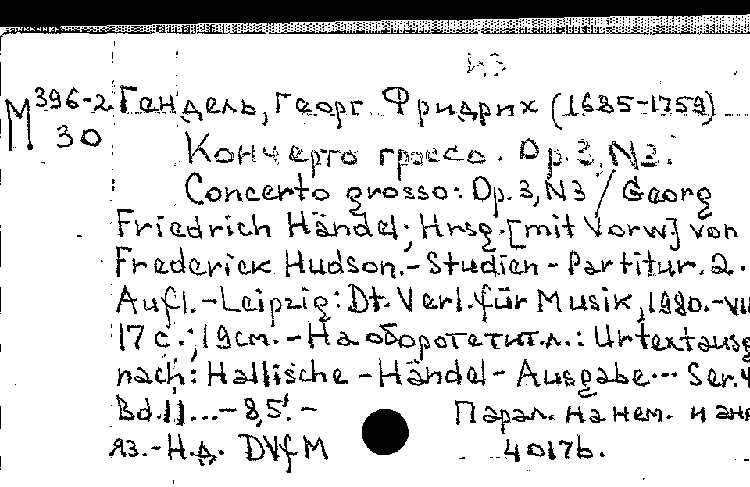 из
М 396-2 Гендель, Георг Фридрих (1685-1759)
30 Кончерто гроссо. Op.3, N3.
Concerto grosso: Op.3, N3 / Georg
Friedrich Händel; Hrsg. [mit Vorw] von
Frederick Hudson.-Studien-Partitur. 2.
Aufl.-Leipzig: Dt. Verl. für Musik, 1980.-VII
17 с.; 19см.-На оборотетит.л.: Urtextausg
nach: Hallische-Händel-Ausgabe... Ser.4
Bd.11...-8,5!.- Парал. на нем. и анг
яз.-Н.д. DVfM 4017b.